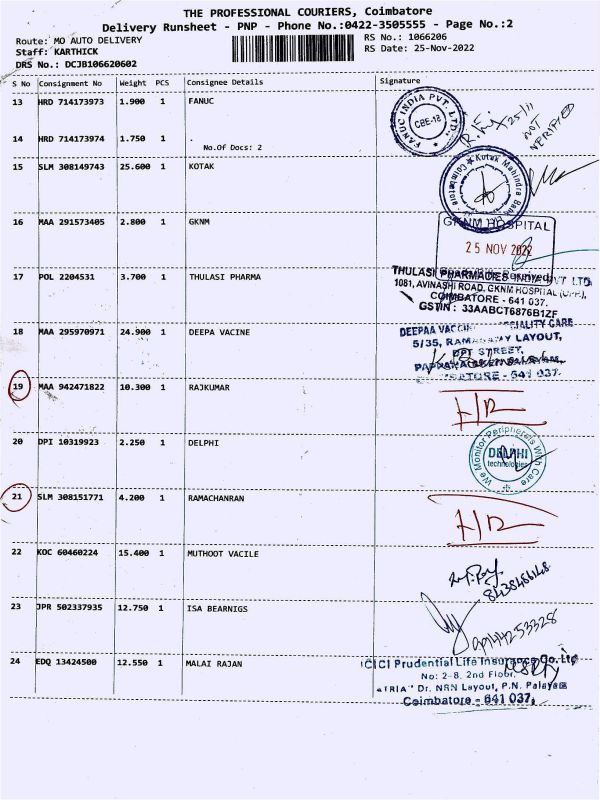 THE PROFESSIONAL COURIERS, Coimbatore
Delivery Runsheet - PNP - Phone No.:0422-3505555 - Page No.:2
Route: MO AUTO DELIVERY
Staff: KARTHICK
DRS No.: DCJB106620602
RS No.: 1066206
RS Date: 25-Nov-2022
S No Consignment No Weight PCS Consignee Details Signature
13 HRD 714173973 1.900 1 FANUC
FANUC INDIA PVT. LTD.
CBE-18
25/11
NOT
VERIFIED
14 HRD 714173974 1.750 1 .
No.Of Docs: 2
15 SLM 308149743 25.600 1 KOTAK
Kotak Mahindra Bank
Coimbatore
16 MAA 291573405 2.800 1 GKNM
GKNM HOSPITAL
25 NOV 2022
17 POL 2204531 3.700 1 THULASI PHARMA
THULASI PHARMACIES INDIA PVT LTD
1081, AVINASHI ROAD, GKNM HOSPITAL
COIMBATORE - 641 037.
GSTIN : 33AABCT6876B1ZF
18 MAA 295970971 24.900 1 DEEPA VACINE
DEEPAA VACCINE SPECIALITY CARE
5/35, LAYOUT,
STREET,
641 037.
19 MAA 942471822 10.300 1 RAJKUMAR
20 DPI 10319923 2.250 1 DELPHI
We Monitor Peripherals With Care
DELPHI
technologies
21 SLM 308151771 4.200 1 RAMACHANRAN
22 KOC 60460224 15.400 1 MUTHOOT VACILE
23 JPR 502337935 12.750 1 ISA BEARNIGS
24 EDQ 13424500 12.550 1 MALAI RAJAN
ICICI Prudential Life Insurance Co. Ltd
No: 2-8, 2nd Floor,
Dr. NRN Layout, P.N. Palayam
Coimbatore - 641 037.